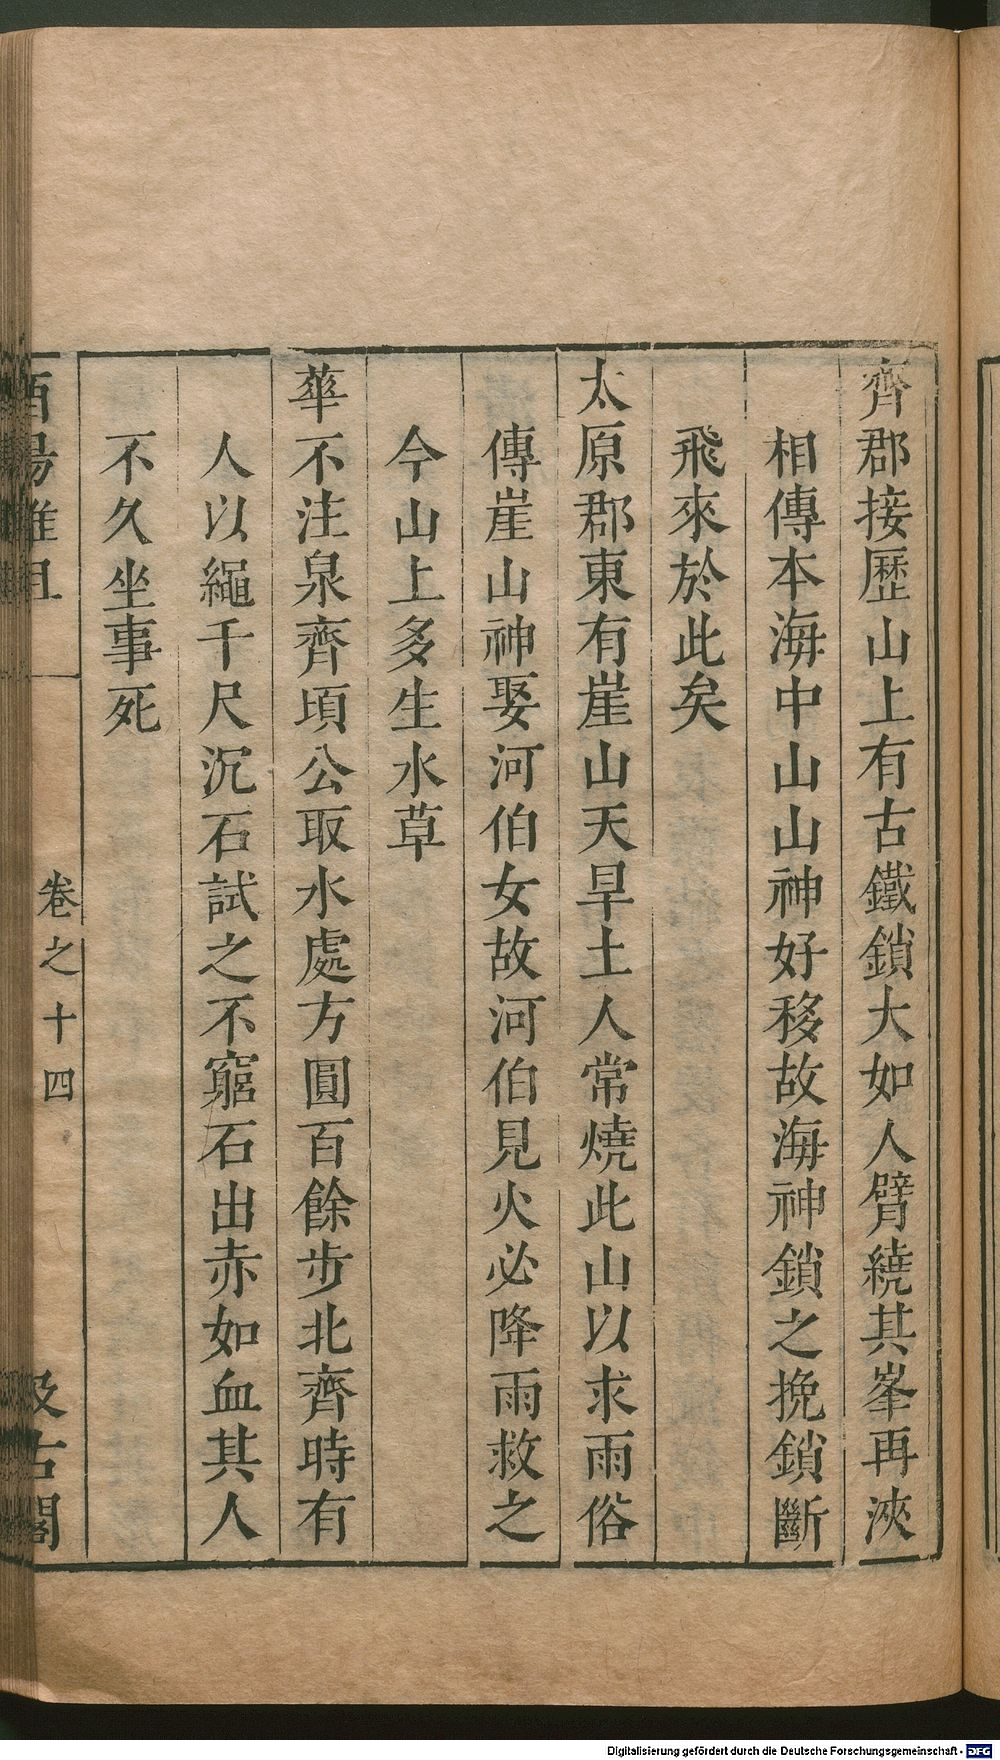 齊郡接歷山上有古鐵鎖大如人臂繞其峯再浹
相傳本海中山山神好移故海神鎖之挽鎖斷
飛來於此矣
太原郡東有崖山天旱土人常燒此山以求雨俗
傳崖山神娶河伯女故河伯見火必降雨救之
今山上多生水草
華不注泉齊頃公取水處方圓百餘步北齊時有
人以繩千尺沉石試之不窮石出赤如血其人
不久坐事死
酉陽雜俎 卷之十四 汲古閣
Digitalisierung gefördert durch die Deutsche Forschungsgemeinschaft - DFG